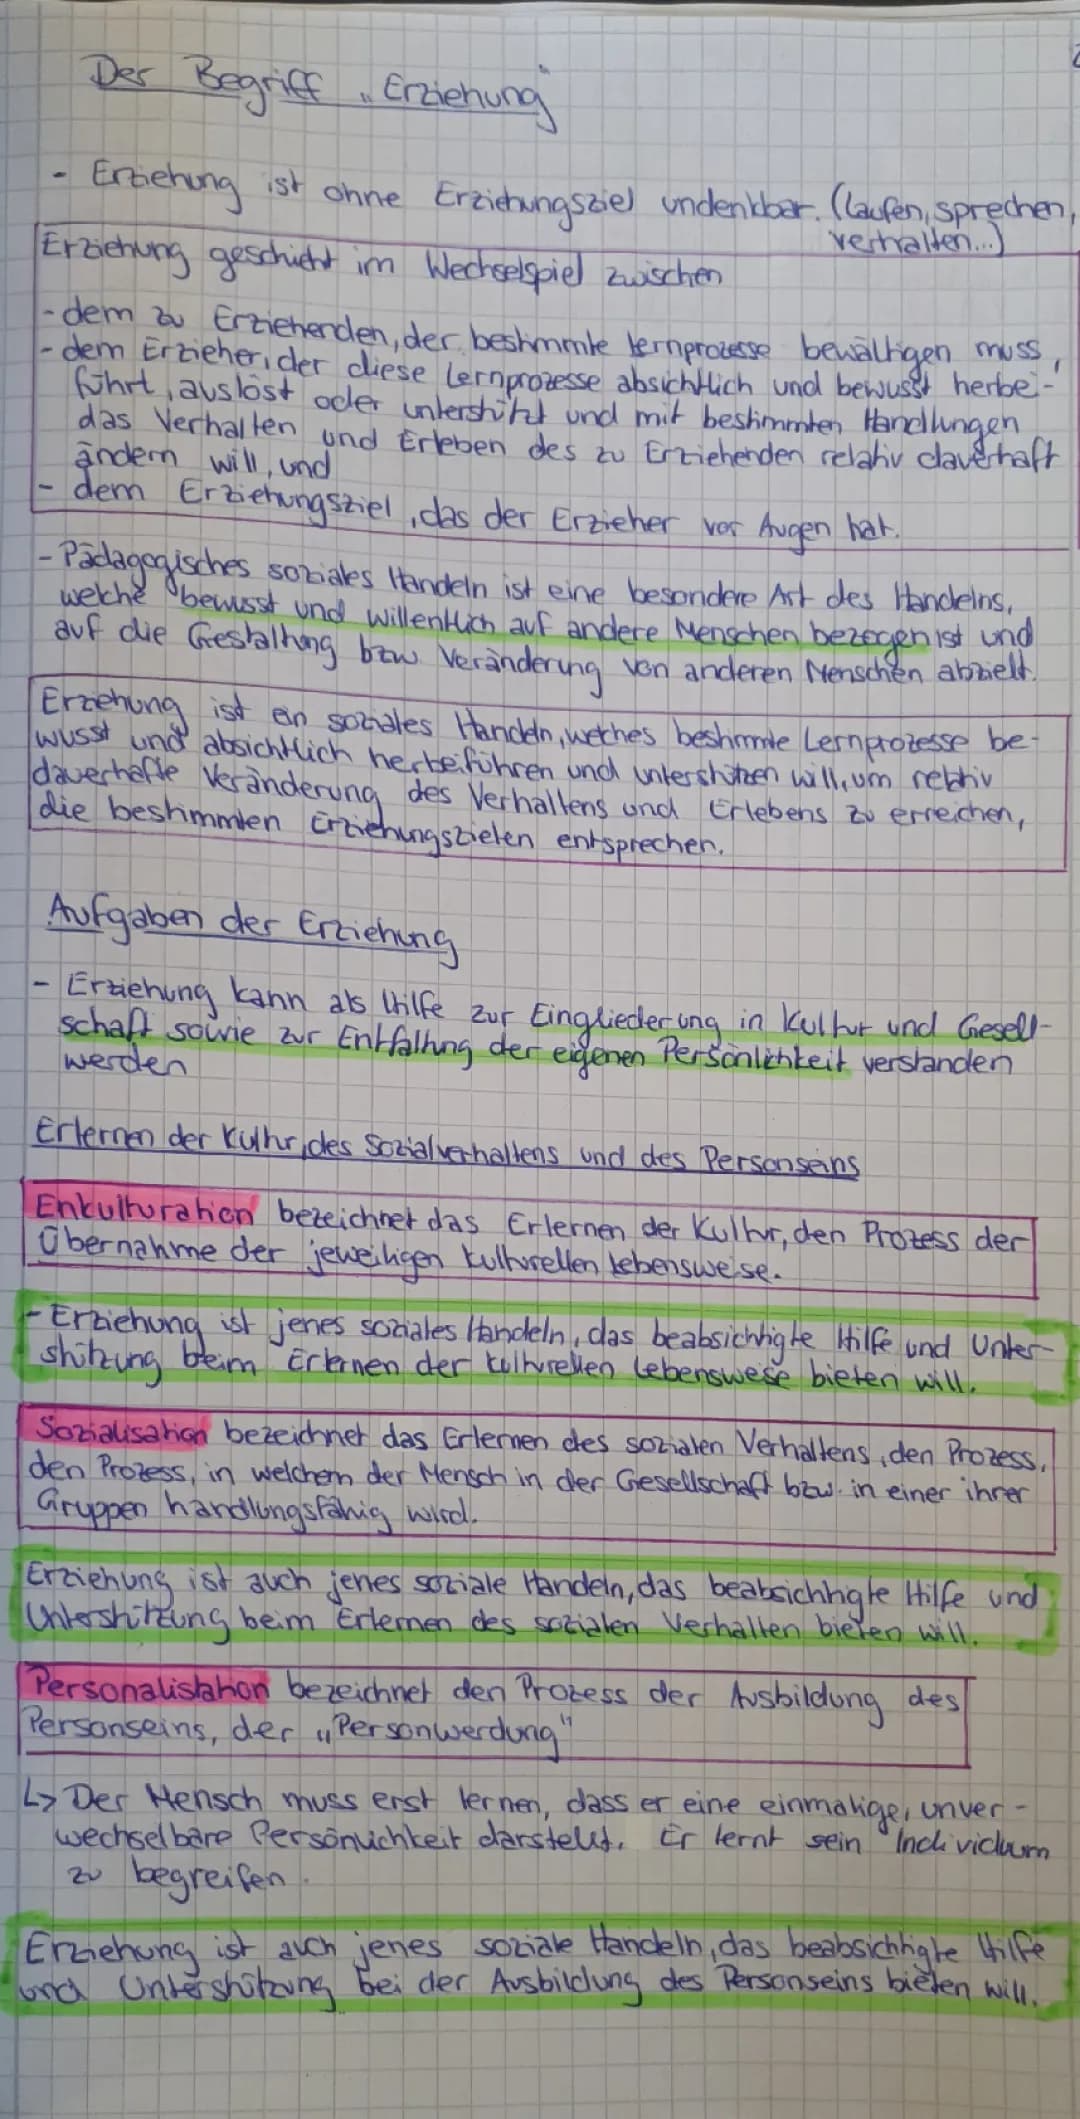 Der Begriff „Erziehung"
- Erziehung ist ohne Erziehungsziel undenkbar. (laufen, sprechen,
verhalten...)
Erziehung geschieht im Wechselspiel zwischen
- dem zu Erziehenden, der bestimmte Lernprozesse bewältigen muss,
- dem Erzieher, der diese Lernprozesse absichtlich und bewusst herbei-
führt, auslöst oder unterstützt und mit bestimmten Handlungen
das Verhalten und Erleben des zu Erziehenden relativ dauerhaft
ändern will, und
- dem Erziehungsziel, das der Erzieher vor Augen hat.
- Pädagogisches soziales Handeln ist eine besondere Art des Handelns,
welche bewusst und willentlich auf andere Menschen bezogen ist und
auf die Gestaltung bzw. Veränderung von anderen Menschen abzielt.
Erziehung ist ein soziales Handeln, welches bestimmte Lernprozesse be-
wusst und absichtlich herbeiführen und unterstützen will, um relativ
dauerhafte Veränderung des Verhaltens und Erlebens zu erreichen,
die bestimmten Erziehungszielen entsprechen.
Aufgaben der Erziehung
- Erziehung kann als Hilfe zur Eingliederung in Kultur und Gesell-
schaft sowie zur Entfaltung der eigenen Persönlichkeit verstanden
werden
Erlernen der Kultur, des Sozialverhaltens und des Personseins
Enkulturation bezeichnet das Erlernen der Kultur, den Prozess der
Übernahme der jeweiligen kulturellen Lebensweise.
- Erziehung ist jenes soziales Handeln, das beabsichtigte Hilfe und Unter-
stützung beim Erlernen der kulturellen Lebensweise bieten will.
Sozialisation bezeichnet das Erlernen des sozialen Verhaltens, den Prozess,
den Prozess, in welchem der Mensch in der Gesellschaft bzw. in einer ihrer
Gruppen handlungsfähig wird.
Erziehung ist auch jenes soziale Handeln, das beabsichtigte Hilfe und
Unterstützung beim Erlernen des sozialen Verhalten bieten will.
Personalistation bezeichnet den Prozess der Ausbildung des
Personseins, der „Personwerdung"
↳ Der Mensch muss erst lernen, dass er eine einmalige, unver-
wechselbare Persönlichkeit darstellt. Er lernt sein Individuum
zu begreifen.
Erziehung ist auch jenes soziale Handeln, das beabsichtigte Hilfe
und Unterstützung bei der Ausbildung des Personseins bieten will.